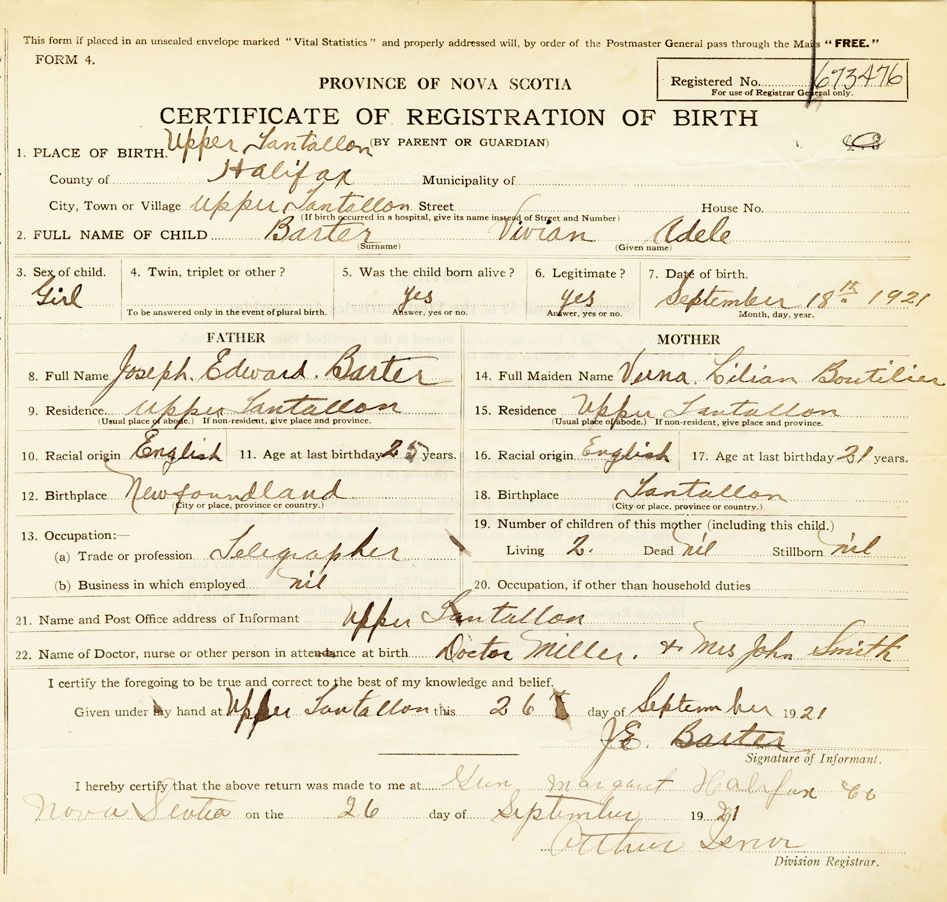 This form if placed in an unsealed envelope marked "Vital Statistics" and properly addressed will, by order of the Postmaster General pass through the Mails "FREE."
FORM 4.
PROVINCE OF NOVA SCOTIA
Registered No. 673476
For use of Registrar General only.
CERTIFICATE OF REGISTRATION OF BIRTH
(BY PARENT OR GUARDIAN)
1. PLACE OF BIRTH. Upper Tantallon
County of Halifax Municipality of
City, Town or Village Upper Tantallon Street House No.
(If birth occurred in a hospital, give its name instead of Street and Number)
2. FULL NAME OF CHILD Barter Vivian Adele
(Surname) (Given name)
3. Sex of child. 4. Twin, triplet or other? 5. Was the child born alive? 6. Legitimate? 7. Date of birth.
Girl yes yes September 18th 1921
To be answered only in the event of plural birth. Answer, yes or no. Answer, yes or no. Month, day, year.
FATHER MOTHER
8. Full Name Joseph. Edward. Barter 14. Full Maiden Name Verna. Lilian Boutilier
9. Residence Upper Tantallon 15. Residence Upper Tantallon
(Usual place of abode.) If non-resident, give place and province. (Usual place of abode.) If non-resident, give place and province.
10. Racial origin English 11. Age at last birthday 25 years. 16. Racial origin English 17. Age at last birthday 21 years.
12. Birthplace Newfoundland 18. Birthplace Tantallon
(City or place, province or country.) (City or place, province or country.)
13. Occupation:— 19. Number of children of this mother (including this child.)
(a) Trade or profession Telegrapher Living 2. Dead nil Stillborn nil
(b) Business in which employed nil 20. Occupation, if other than household duties
21. Name and Post Office address of Informant Upper Tantallon
22. Name of Doctor, nurse or other person in attendance at birth Doctor Miller. + Mrs John Smith
I certify the foregoing to be true and correct to the best of my knowledge and belief.
Given under my hand at Upper Tantallon this 26 day of September 1921
J.E. Barter
Signature of Informant.
I hereby certify that the above return was made to me at Margaret Halifax Co
Nova Scotia on the 26 day of September 1921
Arthur
Division Registrar.